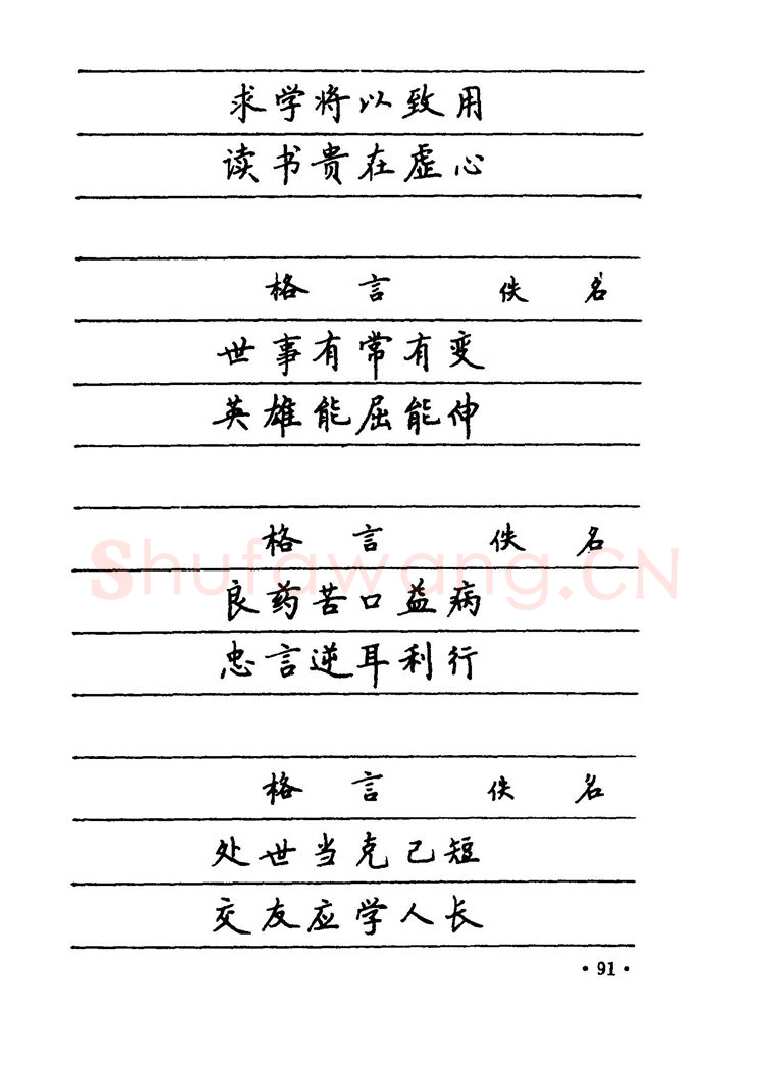 求学将以致用
读书贵在虚心
格言 佚名
世事有常有变
英雄能屈能伸
格言 佚名
Shufawang.CN
良药苦口益病
忠言逆耳利行
格言 佚名
处世当克己短
交友应学人长
·91·